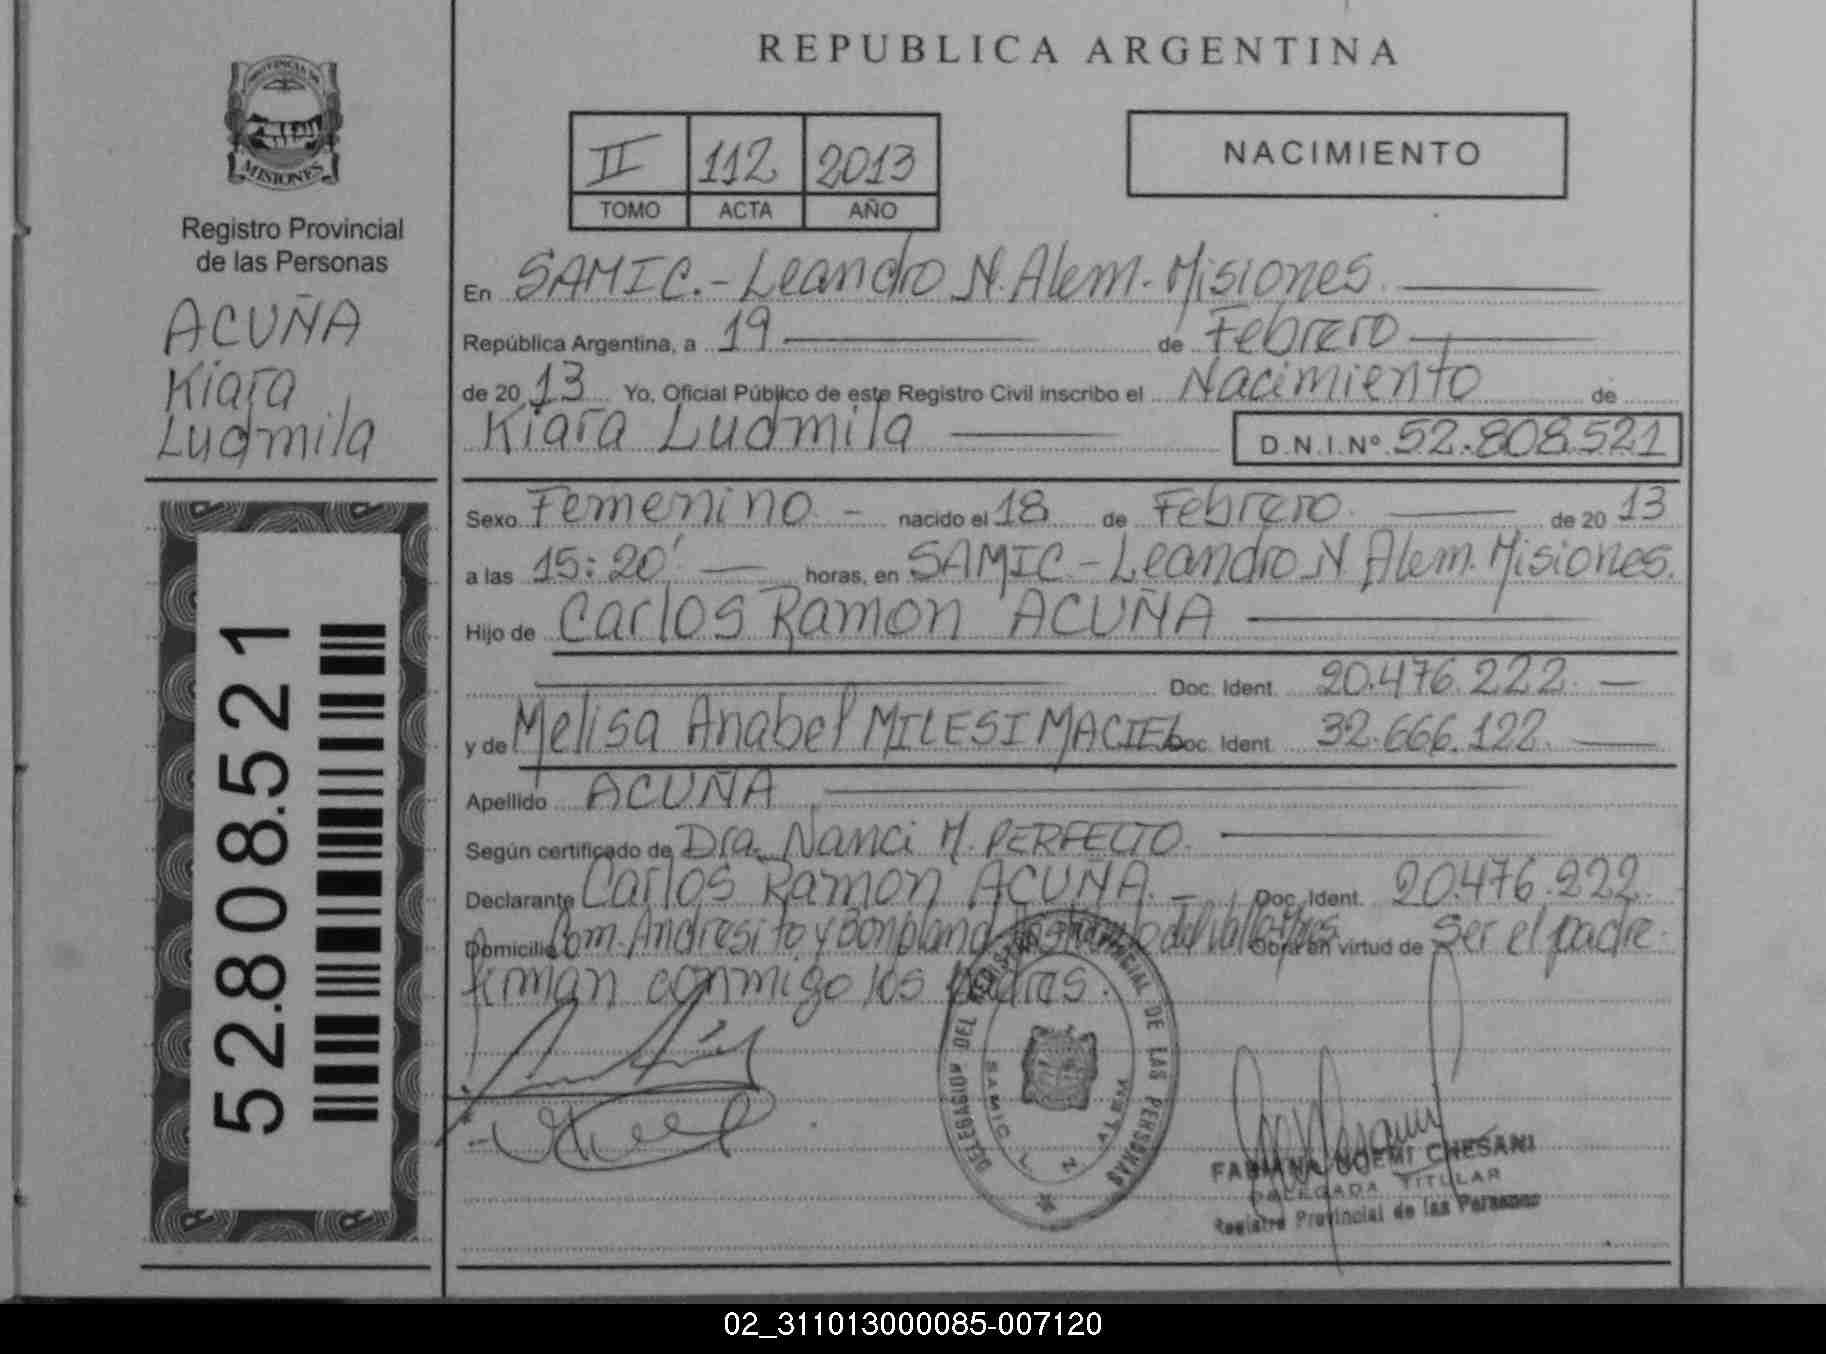 REPUBLICA ARGENTINA
PROVINCIA DE
MISIONES
Registro Provincial
de las Personas
ACUÑA
Kiara
Ludmila
52.808.521
II 112 2013
TOMO ACTA AÑO
NACIMIENTO
En SAMIC.-Leandro N. Alem. Misiones.
República Argentina, a 19 de Febrero
de 2013 Yo, Oficial Público de este Registro Civil inscribo el Nacimiento de
Kiara Ludmila D.N.I.Nº 52.808.521
Sexo Femenino - nacido el 18 de Febrero de 2013
a las 15:20' horas, en SAMIC.-Leandro N. Alem. Misiones.
Hijo de Carlos Ramon ACUÑA
Doc. Ident. 20.476.222.
y de Melisa Anabel MILESI MACIEL Doc. Ident. 32.666.122.
Apellido ACUÑA
Según certificado de Dra. Nanci M. PERFECTO.
Declarante Carlos Ramon ACUÑA. Doc. Ident. 20.476.222.
Domicilio Com. Andresito y Bonpland Obra en virtud de ser el padre.
firman conmigo los padres.
DELEGACION DEL REGISTRO PROVINCIAL DE LAS PERSONAS
SAMIC L N ALEM
FABIANA NOEMI CHESANI
DELEGADA TITULAR
Registro Provincial de las Personas
02_311013000085-007120